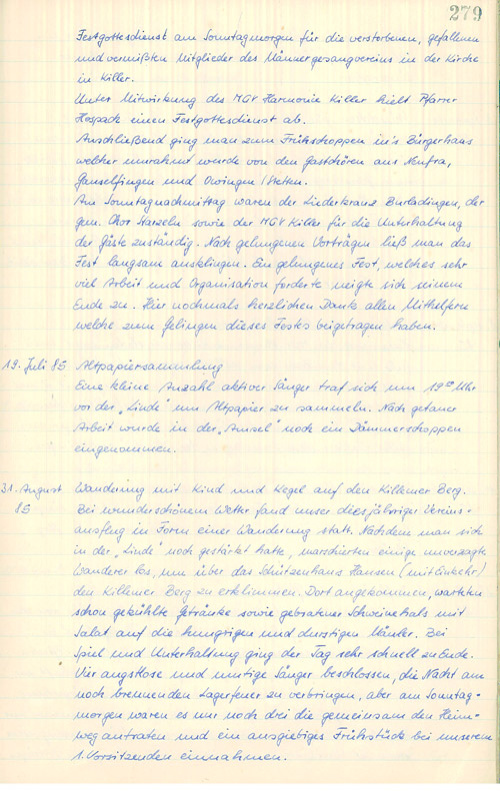 279
Festgottesdienst am Sonntagmorgen für die verstorbenen, gefallenen
und vermißten Mitglieder des Männergesangvereins in der Kirche
in Killer.
Unter Mitwirkung des MGV Harmonie Killer hielt Pfarrer
Hospach einen Festgottesdienst ab.
Anschließend ging man zum Frühschoppen in's Bürgerhaus
welcher umrahmt wurde von den Gastchören aus Neufra,
Gauselfingen und Owingen/Stetten.
Am Sonntagnachmittag waren der Liederkranz Burladingen, der
gem. Chor Starzeln sowie der MGV Killer für die Unterhaltung
der Gäste zuständig. Nach gelungenen Vorträgen ließ man das
Fest langsam ausklingen. Ein gelungenes Fest, welches sehr
viel Arbeit und Organisation forderte neigte sich seinem
Ende zu. Hier nochmals herzlichen Dank allen Mithelfern
welche zum Gelingen dieses Festes beigetragen haben.
19. Juli 85 Altpapiersammlung
Eine kleine Anzahl aktiver Sänger traf sich um 19⁰⁰ Uhr
vor der „Linde" um Altpapier zu sammeln. Nach getaner
Arbeit wurde in der „Amsel" noch ein Dämmerschoppen
eingenommen.
31. August Wanderung mit Kind und Kegel auf den Killemer Berg.
85 Bei wunderschönem Wetter fand unser diesjähriger Vereins-
ausflug in Form einer Wanderung statt. Nachdem man sich
in der „Linde" noch gestärkt hatte, marschierten einige unverzagte
Wanderer los, um über das Schützenhaus Hausen (mit Einkehr)
den Killemer Berg zu erklimmen. Dort angekommen, warteten
schon gekühlte Getränke sowie gebratener Schweinehals mit
Salat auf die hungrigen und durstigen Mäuler. Bei
Spiel und Unterhaltung ging der Tag sehr schnell zu Ende.
Vier angstlose und mutige Sänger beschlossen, die Nacht am
noch brennenden Lagerfeuer zu verbringen, aber am Sonntag-
morgen waren es nur noch drei die gemeinsam den Heim-
weg antraten und ein ausgiebiges Frühstück bei unserem
1. Vorsitzenden einnahmen.